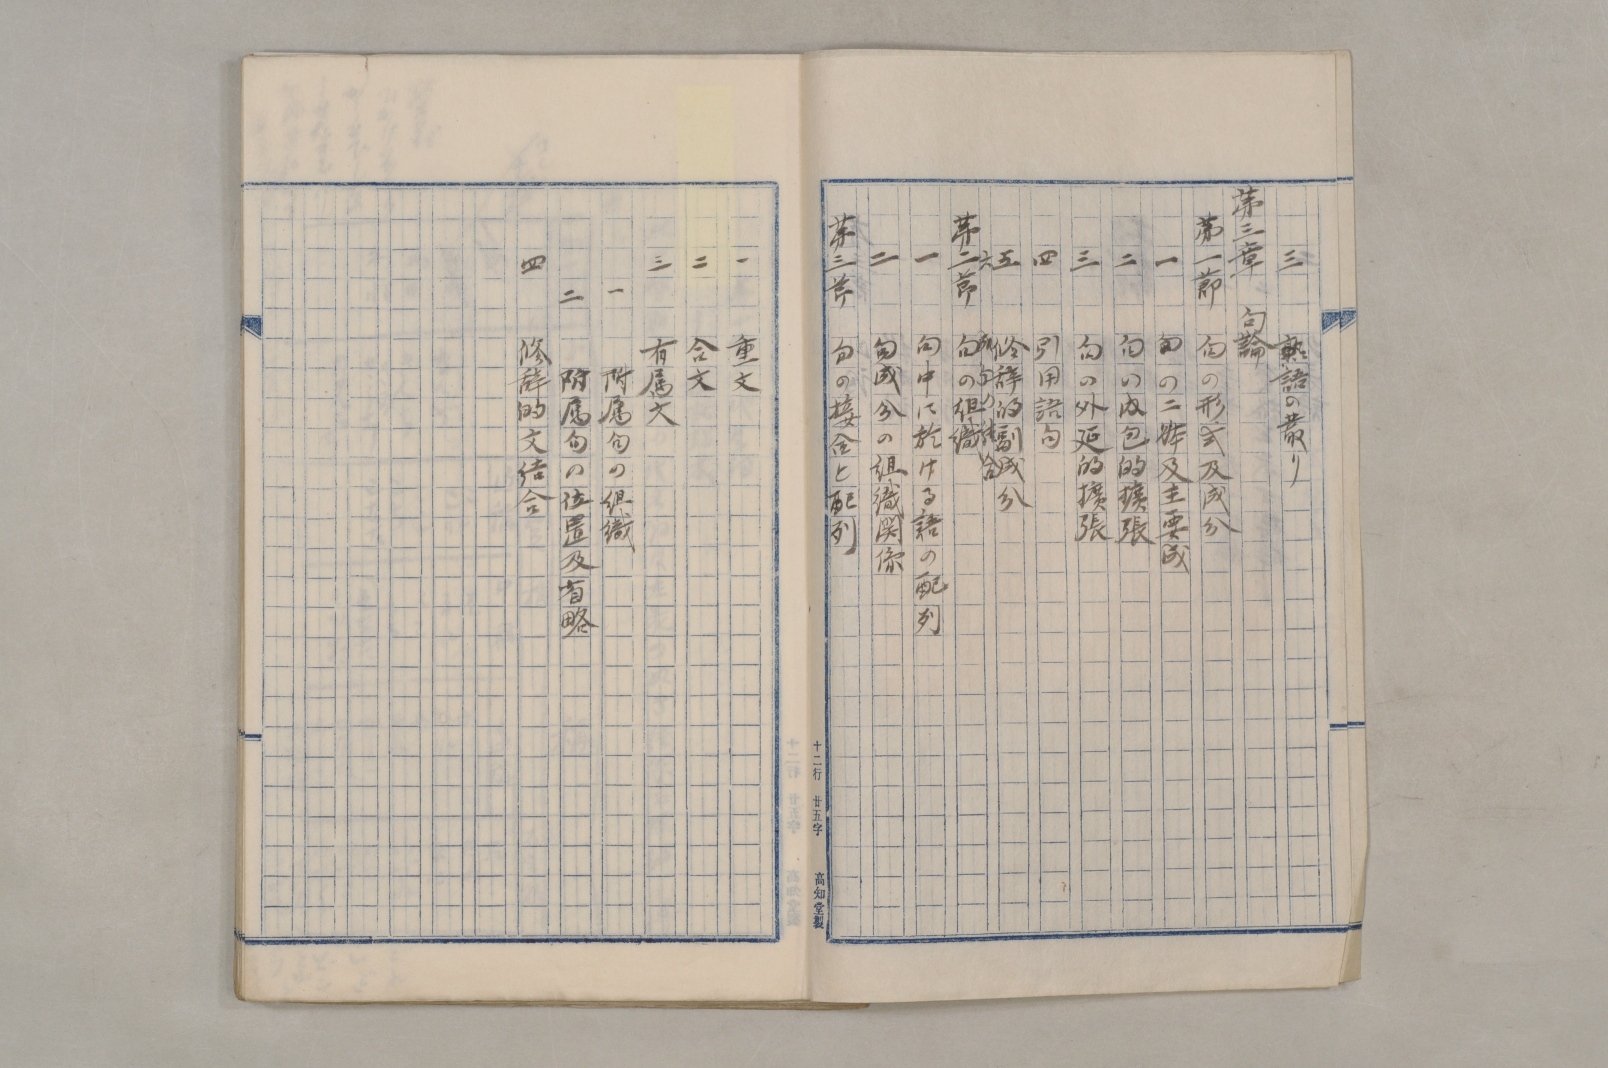 三　熟語の散り
第三章　句論
第一節　句の形式及成分
一　句の二体及主要成
二　句の内包的擴張
三　句の外延的擴張
四　引用語句
五　修辞的副成分
六　の結合
第二節　句の組織
一　句中に於ける語の配列
二　句成分の組織関係
第三節　句の接合と配列
十二行　廿五字　高知堂製
一　重文
二　合文
三　有属文
一　附属句の組織
二　附属句の位置及省略
四　修辞的文結合